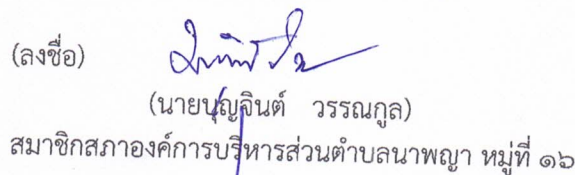 (ลงชื่อ)
(นายบุญจินต์ วรรณกูล)
สมาชิกสภาองค์การบริหารส่วนตำบลนาพญา หมู่ที่ ๑๖